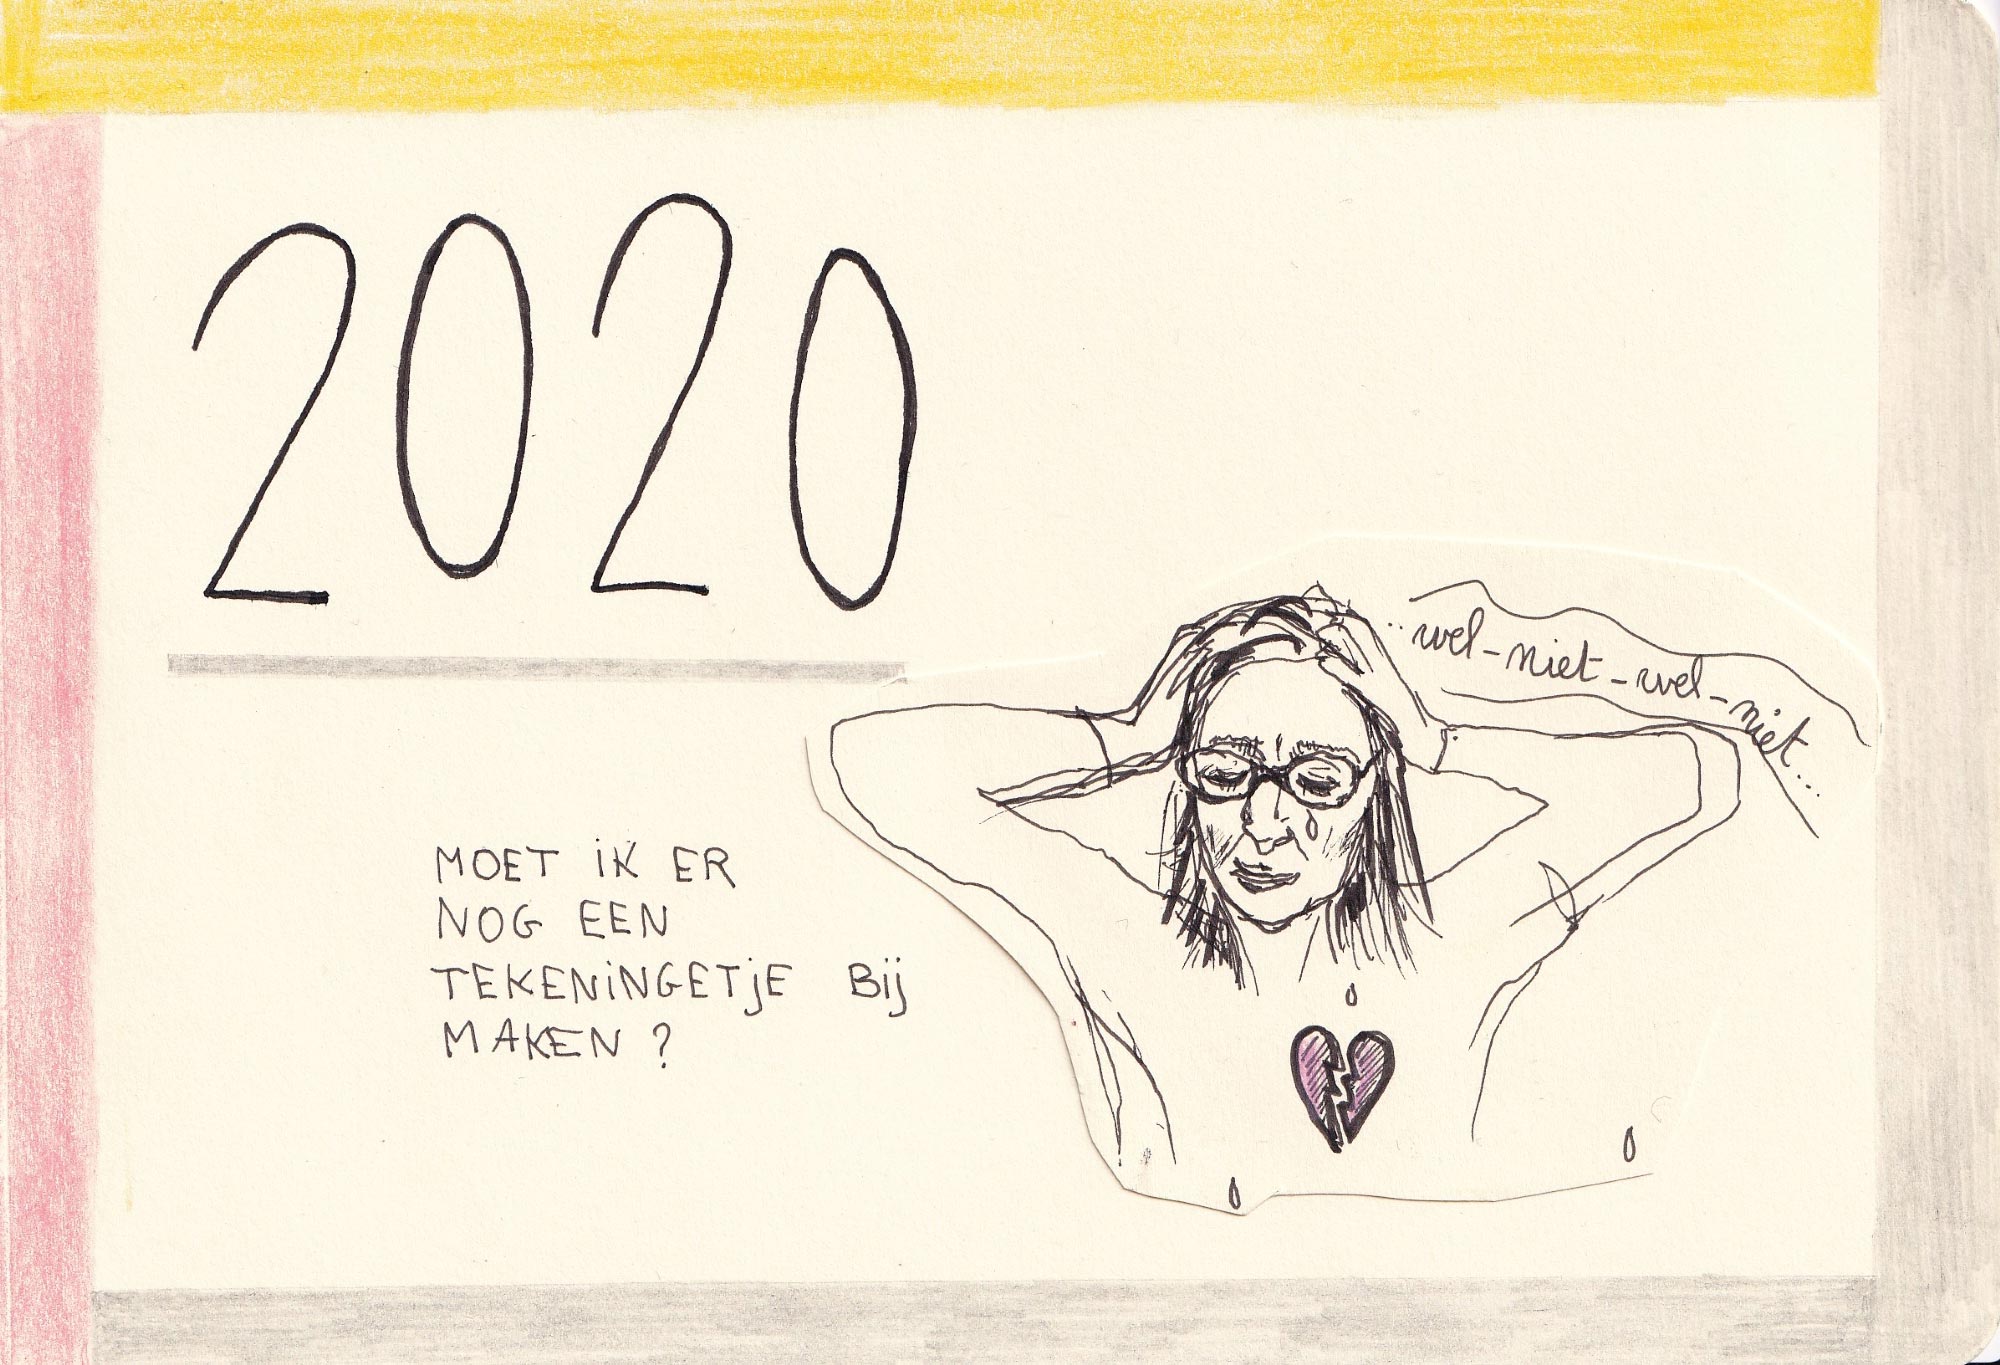 2020
..wel-niet-wel-niet...
MOET iK ER
NOG EEN
TEKENiNGETjE Bij
MAKEN?